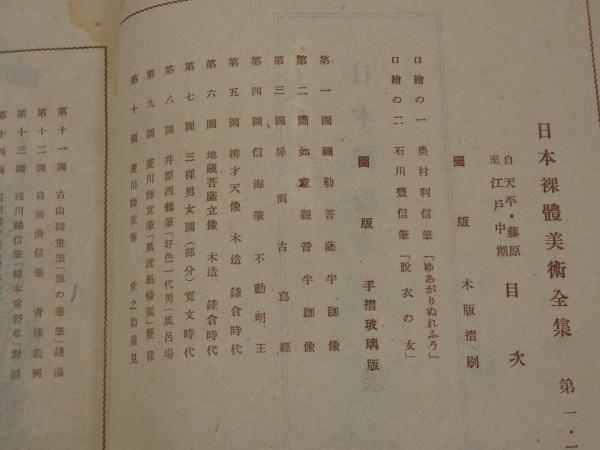 日本裸體美術全集 第一・
自天平・藤原
至江戸中期
目次
圖版 木版摺刷
口繪の一 奥村利信筆「ゆあがりぬれふう」
口繪の二 石川豊信筆「脫衣の女」
圖版 手摺玻璃版
第一圖 彌勒菩薩半跏像
第二圖 如意觀音半跏像
第三圖 扇面古寫經
第四圖 信海筆 不動明王
第五圖 辨才天像 木造 鎌倉時代
第六圖 地藏菩薩立像 木造 鎌倉時代
第七圖 三裸男女圖(部分)寬文時代
第八圖 井原西鶴筆「好色一代男」風呂場
第九圖 菱川師宣筆「風流
第十圖 菱川師宣筆 世之助覗見
第十一圖 古山師重筆「鹿の卷筆」錢湯
第十二圖 鳥居淸信筆 靑樓遊興
第十三圖 西川祐信筆「繪本常盤草」
第十四圖